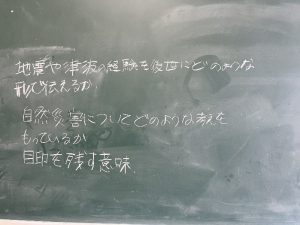 地震や津波の経験を後世にどのような
形で伝えるか
自然災害についてどのような考えを
もっているか
目印を残す意味